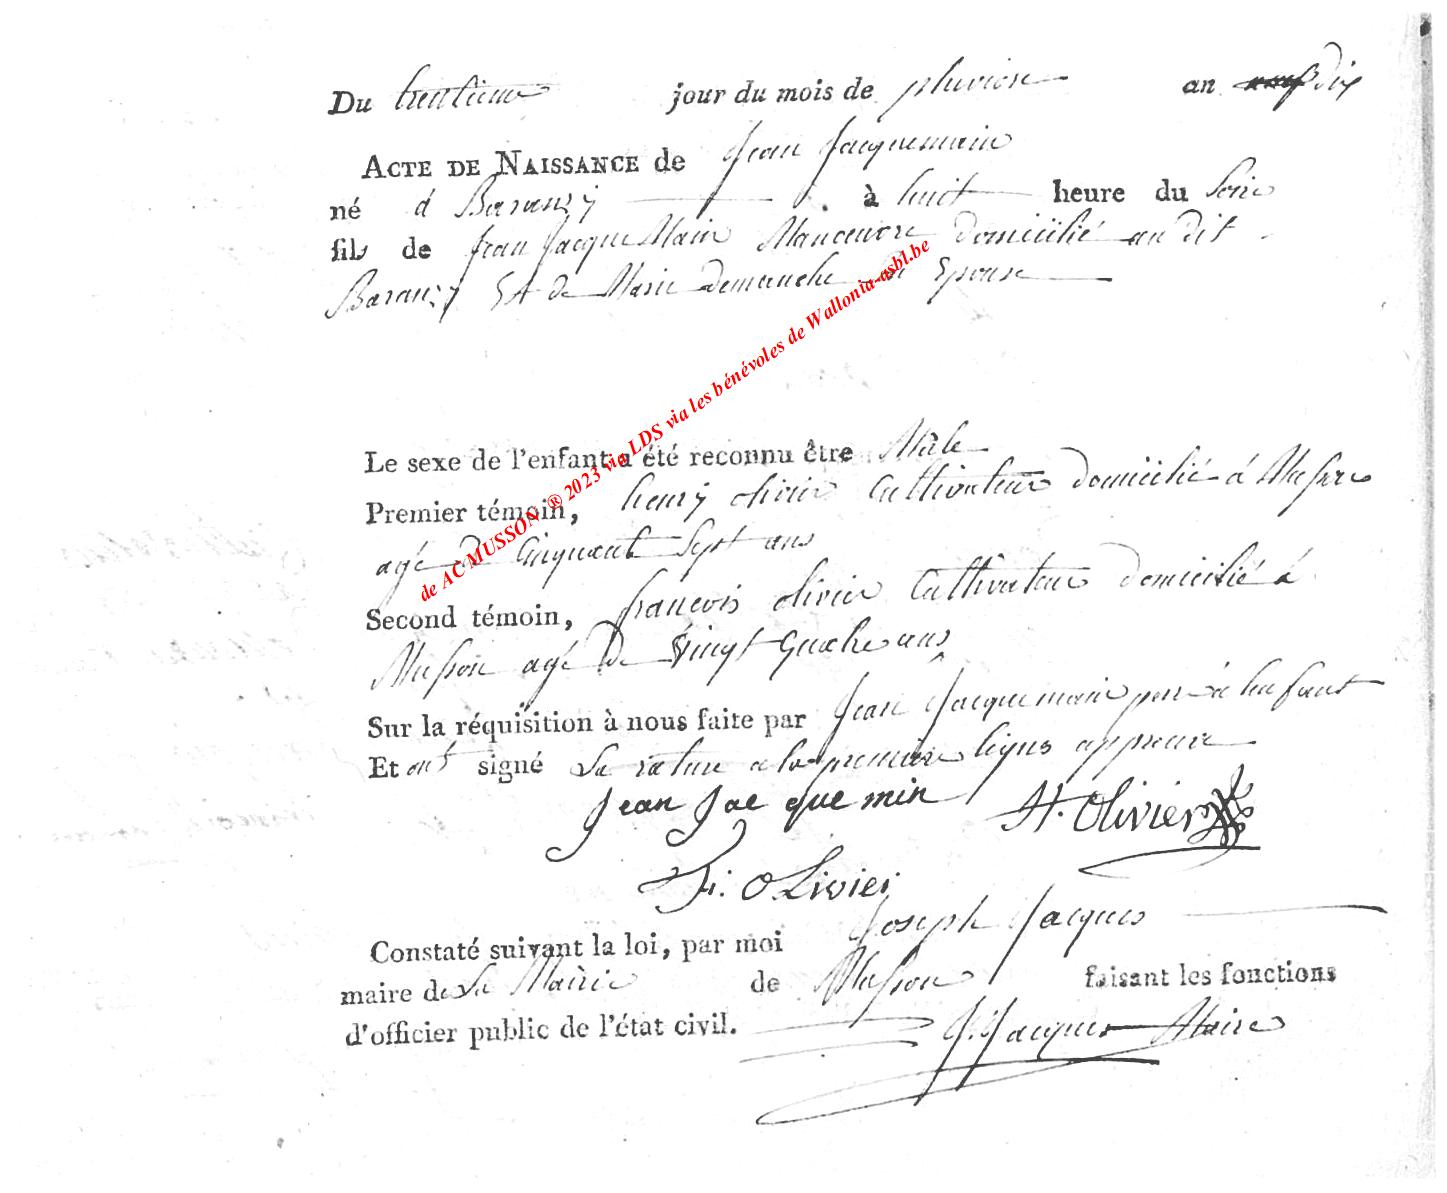 Du trentieme jour du mois de pluviose an neuf dix
ACTE DE NAISSANCE de Jean Jacquemain
né à Baranzy à huit heure du soire
fils de Jean Jacque Main Manoeuvre domicilié au dit
Baranzy Et de Marie Demanche son Epouse
Le sexe de l'enfant a été reconnu être Mâle
Premier témoin, henry olivier Cultivateur domicilié à Musson
agé de Cinquante Sept ans
Second témoin, francois olivier Cultivateur domicilié à
Musson agé de vingt quatre ans
Sur la réquisition à nous faite par Jean Jacquemain per à lenfant
Et ont signé La rature a la premiere ligne appreuve
Jean Jacquemin H. Olivier
F. OLivier
Constaté suivant la loi, par moi Joseph Jacques
maire de La Mairie de Musson faisant les fonctions
d'officier public de l'état civil. J. Jacques Maire
de AC MUSSON ® 2023 via LDS via les bénévoles de Wallonia-asbl.be